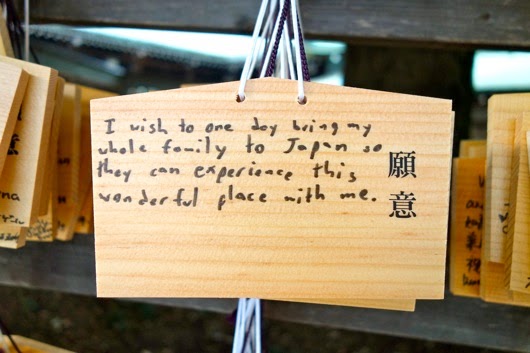 I wish to one day bring my
whole family to Japan so
they can experience this
wonderful place with me.
願意